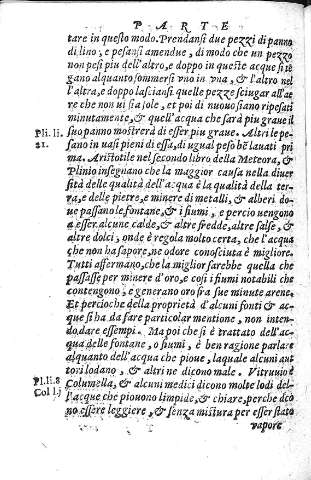 PARTE
tare in questo modo. Prendansi due pezzi di panno
di lino, e pesansi amendue, di modo che un pezzo
non pesi piu dell'altro, e doppo in queste acque si tẽ
gano alquanto sommersi vno in vna, & l'altro nel
l'altra, e doppo lasciansi quelle pezze sciugar all'ae
re che non ui sia sole, et poi di nuouo siano ripesati
minutamente, & quell'acqua che sarà piu graue il
Pli. li. suo panno mostrerà di esser piu graue. Altri le pe-
21. sano in uasi pieni di essa, di ugual peso bẽ lauati pri
ma. Aristotile nel secondo libro della Meteora, &
Plinio insegnano che la maggior causa nella diuer
sità delle qualità dell'acqua è la qualità della ter-
ra, e delle pietre, e minere di metalli, & alberi do-
ue passano le fontane, & i fiumi, e perciò uengono
a esser alcune calde, & altre fredde, altre salse, &
altre dolci, onde è regola molto certa, che l'acqua
che non ha sapore, ne odore conosciuta è migliore.
Tutti affermano, che la miglior sarebbe quella che
passasse per minere d'oro, e così i fiumi notabili che
contengono, e generano oro fra sue minute arene.
Et percioche della proprietà d'alcuni fonti & ac-
que si ha da fare particolar mentione, non inten-
do dare essempi. Ma poi che si è trattato dell'ac-
qua delle fontane, o fiumi, è ben ragione parlare
alquanto dell'acqua che pioue, laquale alcuni aut
tori lodano, & altri ne dicono male. Vitruuio &
Pl. li. 8 Columella, & alcuni medici dicono molte lodi del-
Col l. j l'acque che piouono limpide, & chiare, perche dico
no essere leggiere, & senza mistura per esser stato
vapore